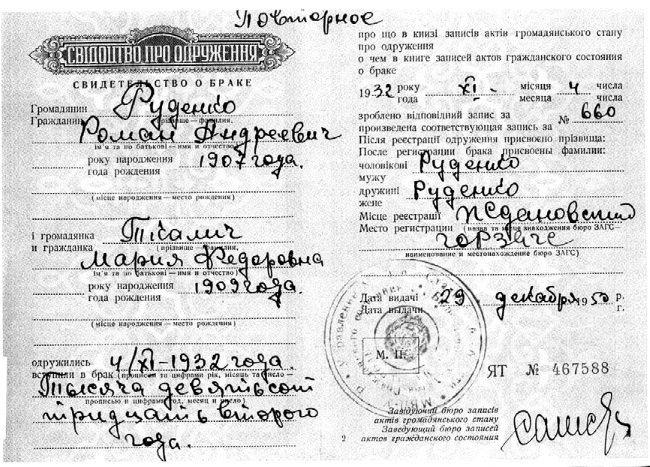 Повторное
СВІДОЦТВО ПРО ОДРУЖЕННЯ
СВИДЕТЕЛЬСТВО О БРАКЕ
Громадянин
Гражданин
Руденко
прізвище — фамилия,
Роман Андреевич
ім'я та по батькові — имя и отчество
року народження
года рождения
1907 года.
(місце народження — место рождения)
і громадянка
и гражданка
(прізвище — фамилия,
Мария Федоровна
ім'я та по батькові — имя и отчество)
року народження
года рождения
1909 года.
(місце народження — место рождения)
одружились
вступили в брак
4/XI-1932 года.
(прописом та цифрами рік, місяць та число —
Тысяча девятьсот
прописью и цифрами год, месяц и число)
тридцать второго
года.
про що в книзі записів актів громадянського стану
про одруження
о чем в книге записей актов гражданского состояния
о браке
1932 року
года
XI
місяця
месяца
4
числа
числа
зроблено відповідний запис за
произведена соответствующая запись за
№ 660
Після реєстрації одруження присвоєно прізвища:
После регистрации брака присвоены фамилии:
чоловікові
мужу
Руденко
дружині
жене
Руденко
Місце реєстрації
Место регистрации
Ждановский
(назва та місце знаходження бюро ЗАГС —
горЗАГС
наименование и местонахождение бюро ЗАГС)
Дата видачі
Дата выдачи
29 декабря 1950 р.
г.
М. П.
ЯТ № 467588
Завідуючий бюро записів
актів громадянського стану
Заведующий бюро записей
актов гражданского состояния
2